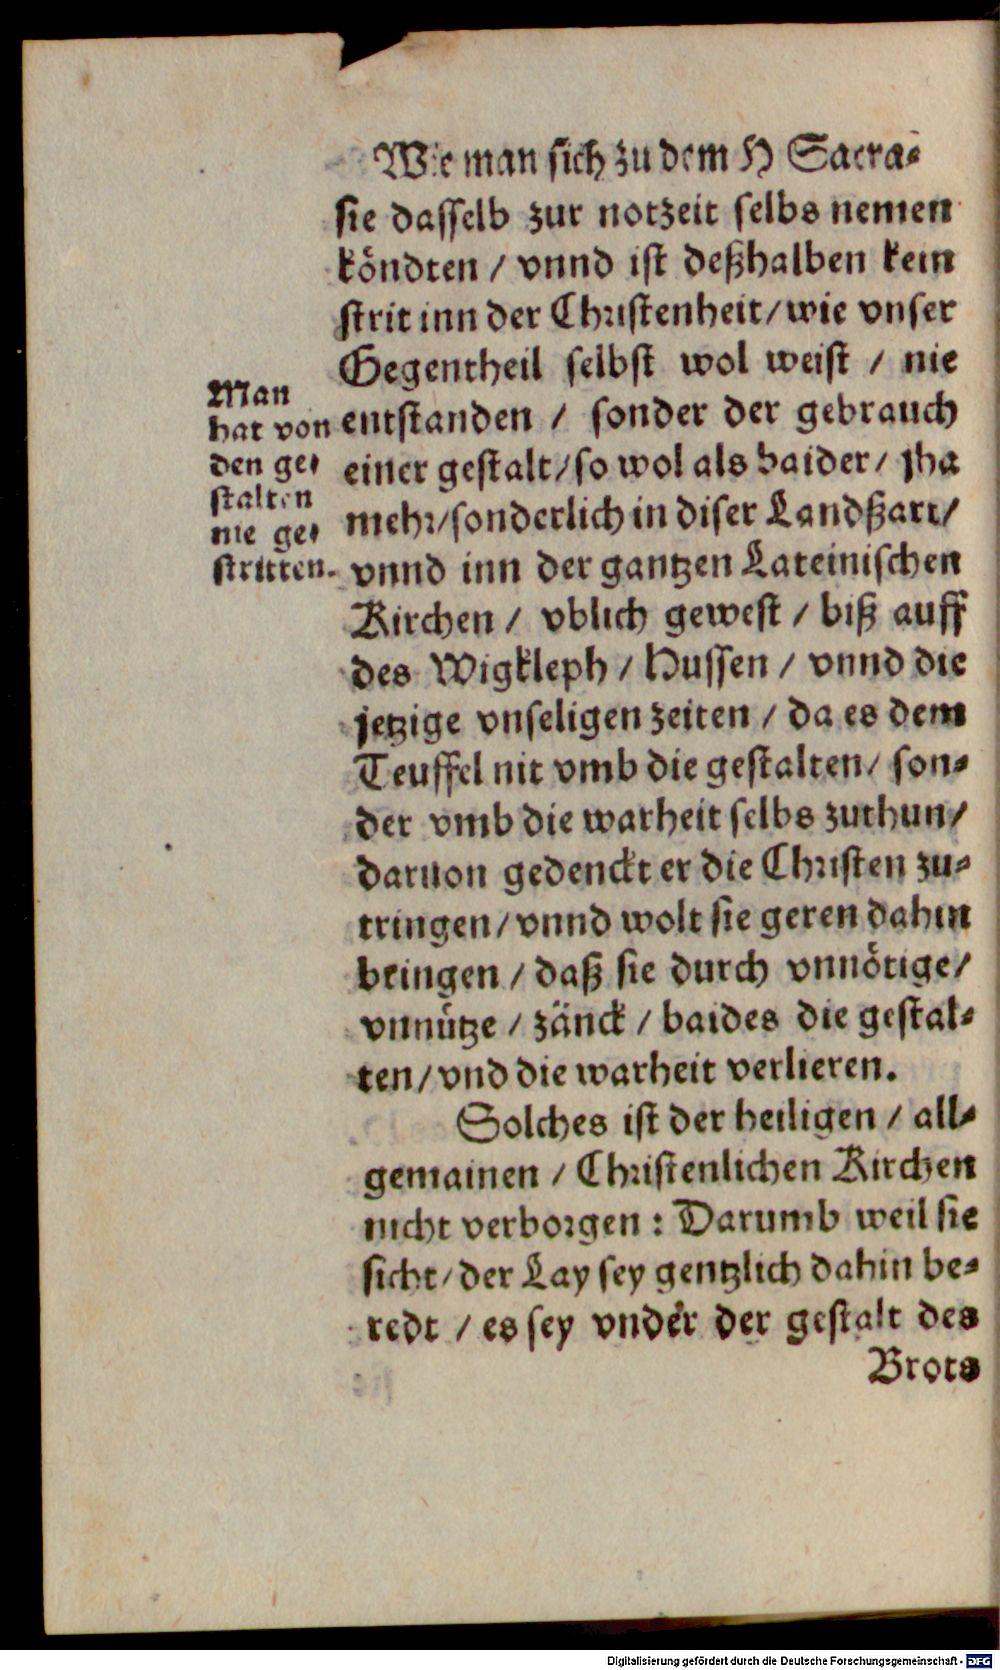 Wie man sich zu dem H Sacra-
sie dasselb zur notzeit selbs nemen
köndten / vnnd ist deßhalben kein
strit inn der Christenheit / wie vnser
Gegentheil selbst wol weist / nie
entstanden / sonder der gebrauch
einer gestalt / so wol als baider / jha
mehr / sonderlich in diser Landßart /
vnnd inn der gantzen Lateinischen
Kirchen / vblich gewest / biß auff
des Wigkleph / Hussen / vnnd die
jetzige vnseligen zeiten / da es dem
Teuffel nit vmb die gestalten / son-
der vmb die warheit selbs zuthun /
daruon gedenckt er die Christen zu-
tringen / vnnd wolt sie geren dahin
bringen / daß sie durch vnnötige /
vnnütze / zänck / baides die gestal-
ten / vnd die warheit verlieren.
Solches ist der heiligen / all-
gemainen / Christenlichen Kirchen
nicht verborgen : Darumb weil sie
sicht / der Lay sey gentzlich dahin be-
redt / es sey vnder der gestalt des
Brots
Man
hat von
den ge-
stalten
nie ge-
stritten.
Digitalisierung gefördert durch die Deutsche Forschungsgemeinschaft - DFG